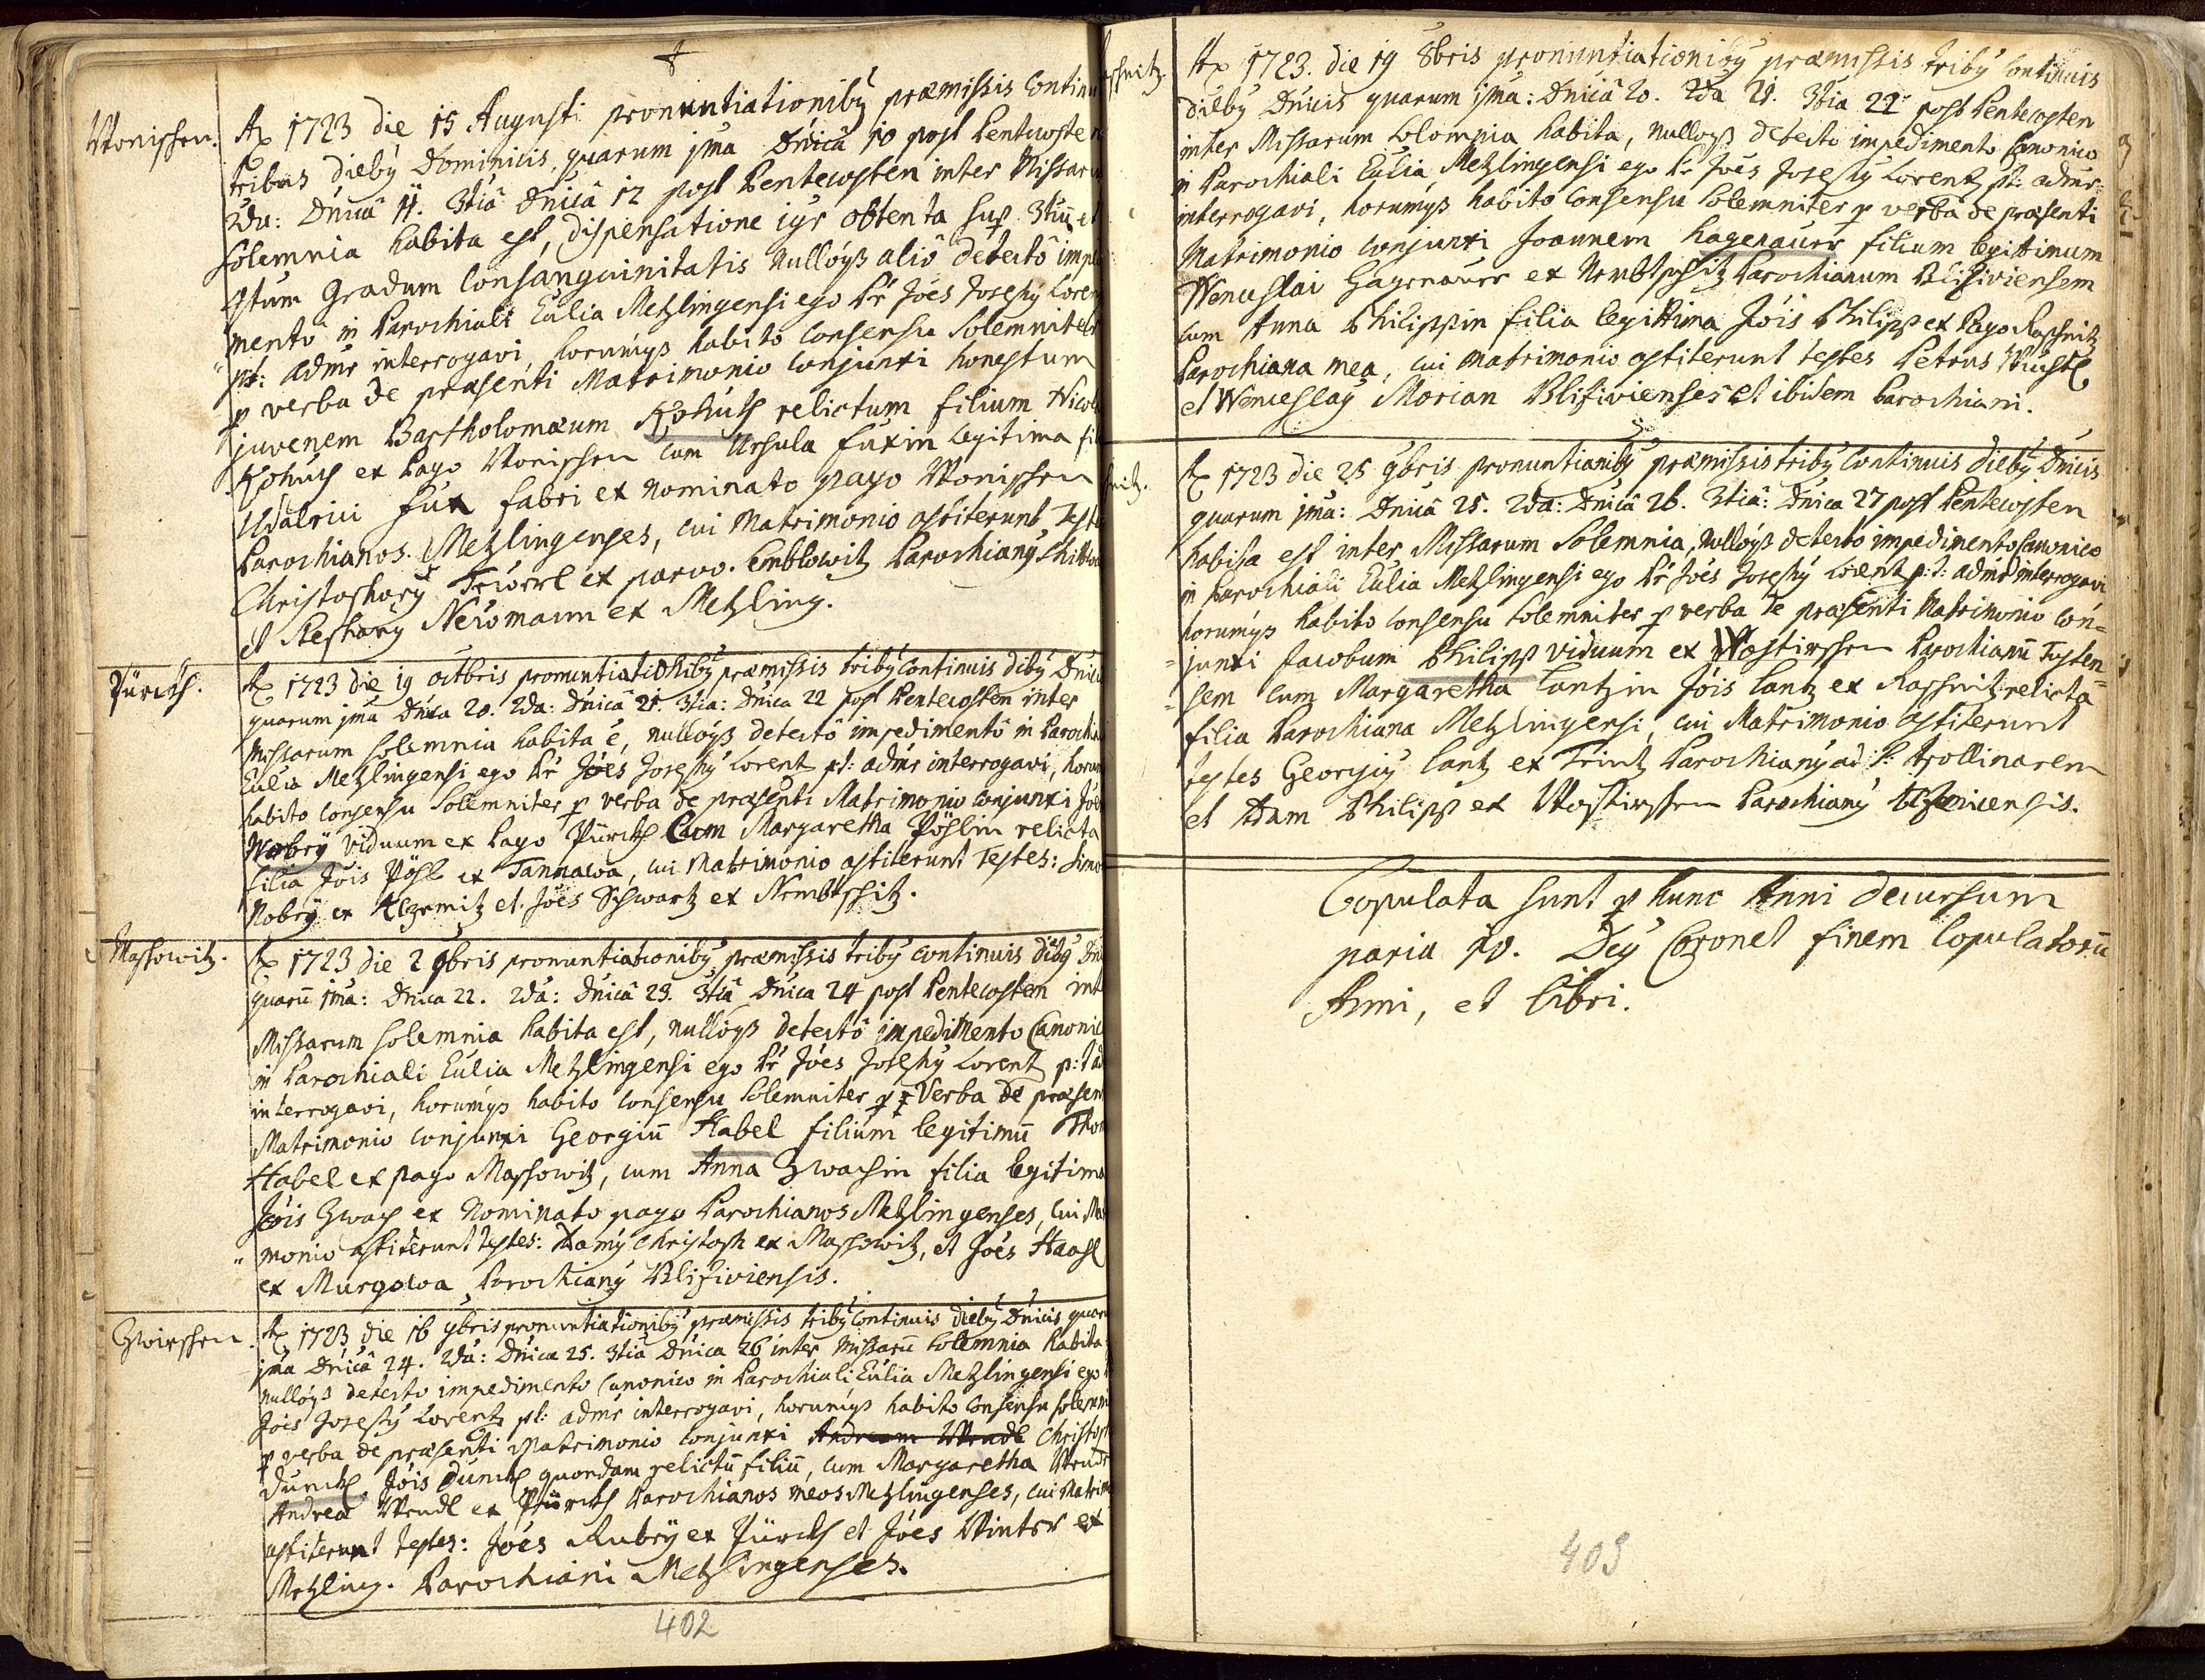 Wonischen.
Ao 1723 die 15 Augusti pronuntiationibꝰ præmissis Continu
tribus diebꝰ Dominicis, quarum jma Dnicâ 10 post Pentecosten
2da: Dnicâ 11. 3tiâ Dnicâ 12 post Pentecosten inter Missaru
solemnia habita est, dispensatione igr obtenta sup 3tiũ et
4tum Gradum Consanguinitatis nullóqꝫ aliô detectô impe
mentô in Parochiali Eclia Metzlingensi ego Pr Jóes Josephꝰ Loren
pt: admr interrogavi, horumqꝫ habito Consensu Solemniter
p verba de præsenti Matrimonio Conjunxi honestum
juvenem Bartholomæum Kohuth relictum filium Nicol
Kohuth ex Pago Wonischen Cum Ursula Fuxin legitima fil
Udalrici Fux fabri ex nominato pago Wonischen
Parochianos Metzlingenses, cui Matrimonio astiterunt Teste
Christophorꝰ ex parvo. Emblowitz Parochianꝰ
et Stephanꝰ Neẃmann ex Metzling.
Pürckh.
Ao 1723 die 19 octbris pronuntiationibꝰ præmissis tribꝰ Continuis dibꝰ Dnicis
quarum jma Dnica 20. 2da: Dnicâ 21. 3tia: Dnica 22 post Pentecosten inter
Missarum solemnia habita ē, nullóqꝫ detectô impedimentô in Parochia
Eclia Metzlingensi ego Pr Jóes Josephꝰ Lorentz pt: admr interrogavi, horum
habito Consensu Solemniter p verba de præsenti Matrimonio Conjunxi Jóe
Wobrÿ viduum ex Pago Pürckh Cum Margaretha Pöslin relicta
filia Jóis Pösl ex Tannawa, cui Matrimonio astiterunt Testes: Simo
Wobrÿ ex et Jóes Schwartz ex Nembtschitz.
Massowitz.
Ao 1723 die 2 9bris pronuntiationibꝰ præmissis tribꝰ continuis diebꝰ Dni
quarũ jma: Dnica 22. 2da: Dnicâ 23. 3tiâ Dnica 24 post Pentecosten int
Missarum solemnia habita est, nullóqꝫ detectô impedimento Canonic
in Parochiali Eclia Metzlingensi ego Pr Jóes Josephꝰ Lorentz p:t ad
interrogavi, horumqꝫ habito Consensu Solemniter p Verba de præsen
Matrimonio Conjunxi Georgiũ Habel filium legitimũ Thom
Habel ex pago Massowitz, cum Anna Zwachin filia legitima
Jóis Zwach ex Nominato pago Parochianos Metzlingenses, Cui Ma
monio astiterunt testes: Adamꝰ Christoph ex Massowitz, et Jóes Haasl
ex Murgowa Parochianꝰ Blisiviensis.
Zwirschen.
Ao 1723 die 16 9bris pronuntiationibꝰ præmissis tribꝰ Continuis diebꝰ Dnicis quaru
jma Dnicâ 24. 2da: Dnica 25. 3tia Dnica 26 inter Missarũ Solemnia habita
nullóqꝫ detecto impedimento Canonico in Parochiali Eclia Metzlingensi ego
Jóis Josephꝰ Lorentz pt: admr interrogavi, horumqꝫ habito Consensu solemni
p verba de præsenti Matrimonio Conjunxi Andream Wendl Christoph
Dunckh, Jóis Dunckh quondam relictũ filiũ, cum Margaretha Wendl
Andreæ Wendl ex Pürckh Parochianos meos Metzlingenses, cui Matrim
astiterunt testes: Jóes Rubrÿ ex Pürckh et Jóes Winter ex
Metzling. Parochiani Metzlingenses.
402
schnitz.
Ao 1723. die 19 8bris pronuntiationibꝰ præmissis tribꝰ Continuis
diebꝰ Dnicis quarum jma: Dnicâ 20. 2da 21. 3tia 22 post Pentecosten
inter Missarum Solempnia habita, nullóqꝫ detecto impedimento Canonico
in Parochiali Eclia Metzlingensi ego Pr Jóes Josephꝰ Lorentz pt: admr:
interrogavi, horumqꝫ habito Consensu Solemniter p verba de præsenti
Matrimonio Conjunxi Joannem Hagenauer filium legittimum
Wenceslai Hagenauer ex Nembtschitz Parochianum Blisiviensem
cum Anna Philippin filia legittima Jóis Philipp ex Pago Raschnitz
Parochiana mea, cui matrimonio astiterunt testes Petrus
et Wenceslaꝰ Morian Blisivienses et ibidem Parochiani.
schnitz.
Ao 1723 die 25 9bris pronuntianibꝰ præmissis tribꝰ Continuis diebꝰ Dnicis
quarum jma: Dnicâ 25. 2da: Dnicâ 26. 3tiâ: Dnica 27 post Pentecosten
habita est inter Missarum Solemnia, nullóqꝫ detecto impedimento Canonico
in Parochiali Eclia Metzlingensi ego Pr Jóes Josephꝰ Lorentz p:t: admr interrogavi
horumqꝫ habito Consensu Solemniter p verba de præsenti Matrimonio Con=
=junxi Jacobum Philipp viduum ex Wostirschen Parochianũ Tosten=
=sem cum Margaretha Lantzin Jóis Lantz ex Raschnitz relicta
filia Parochiana Metzlingensi, cui Matrimonio astiterunt
testes Georgiꝰ Lantz ex Trintz Parochianꝰ ad S: Apollinarem
et Adam Philipp ex Wostirschen Parochianꝰ
Copulata sunt p hunc Anni decursum
paria 10. Dꝰ Coronet finem Copulatorũ
Anni, et libri.
403